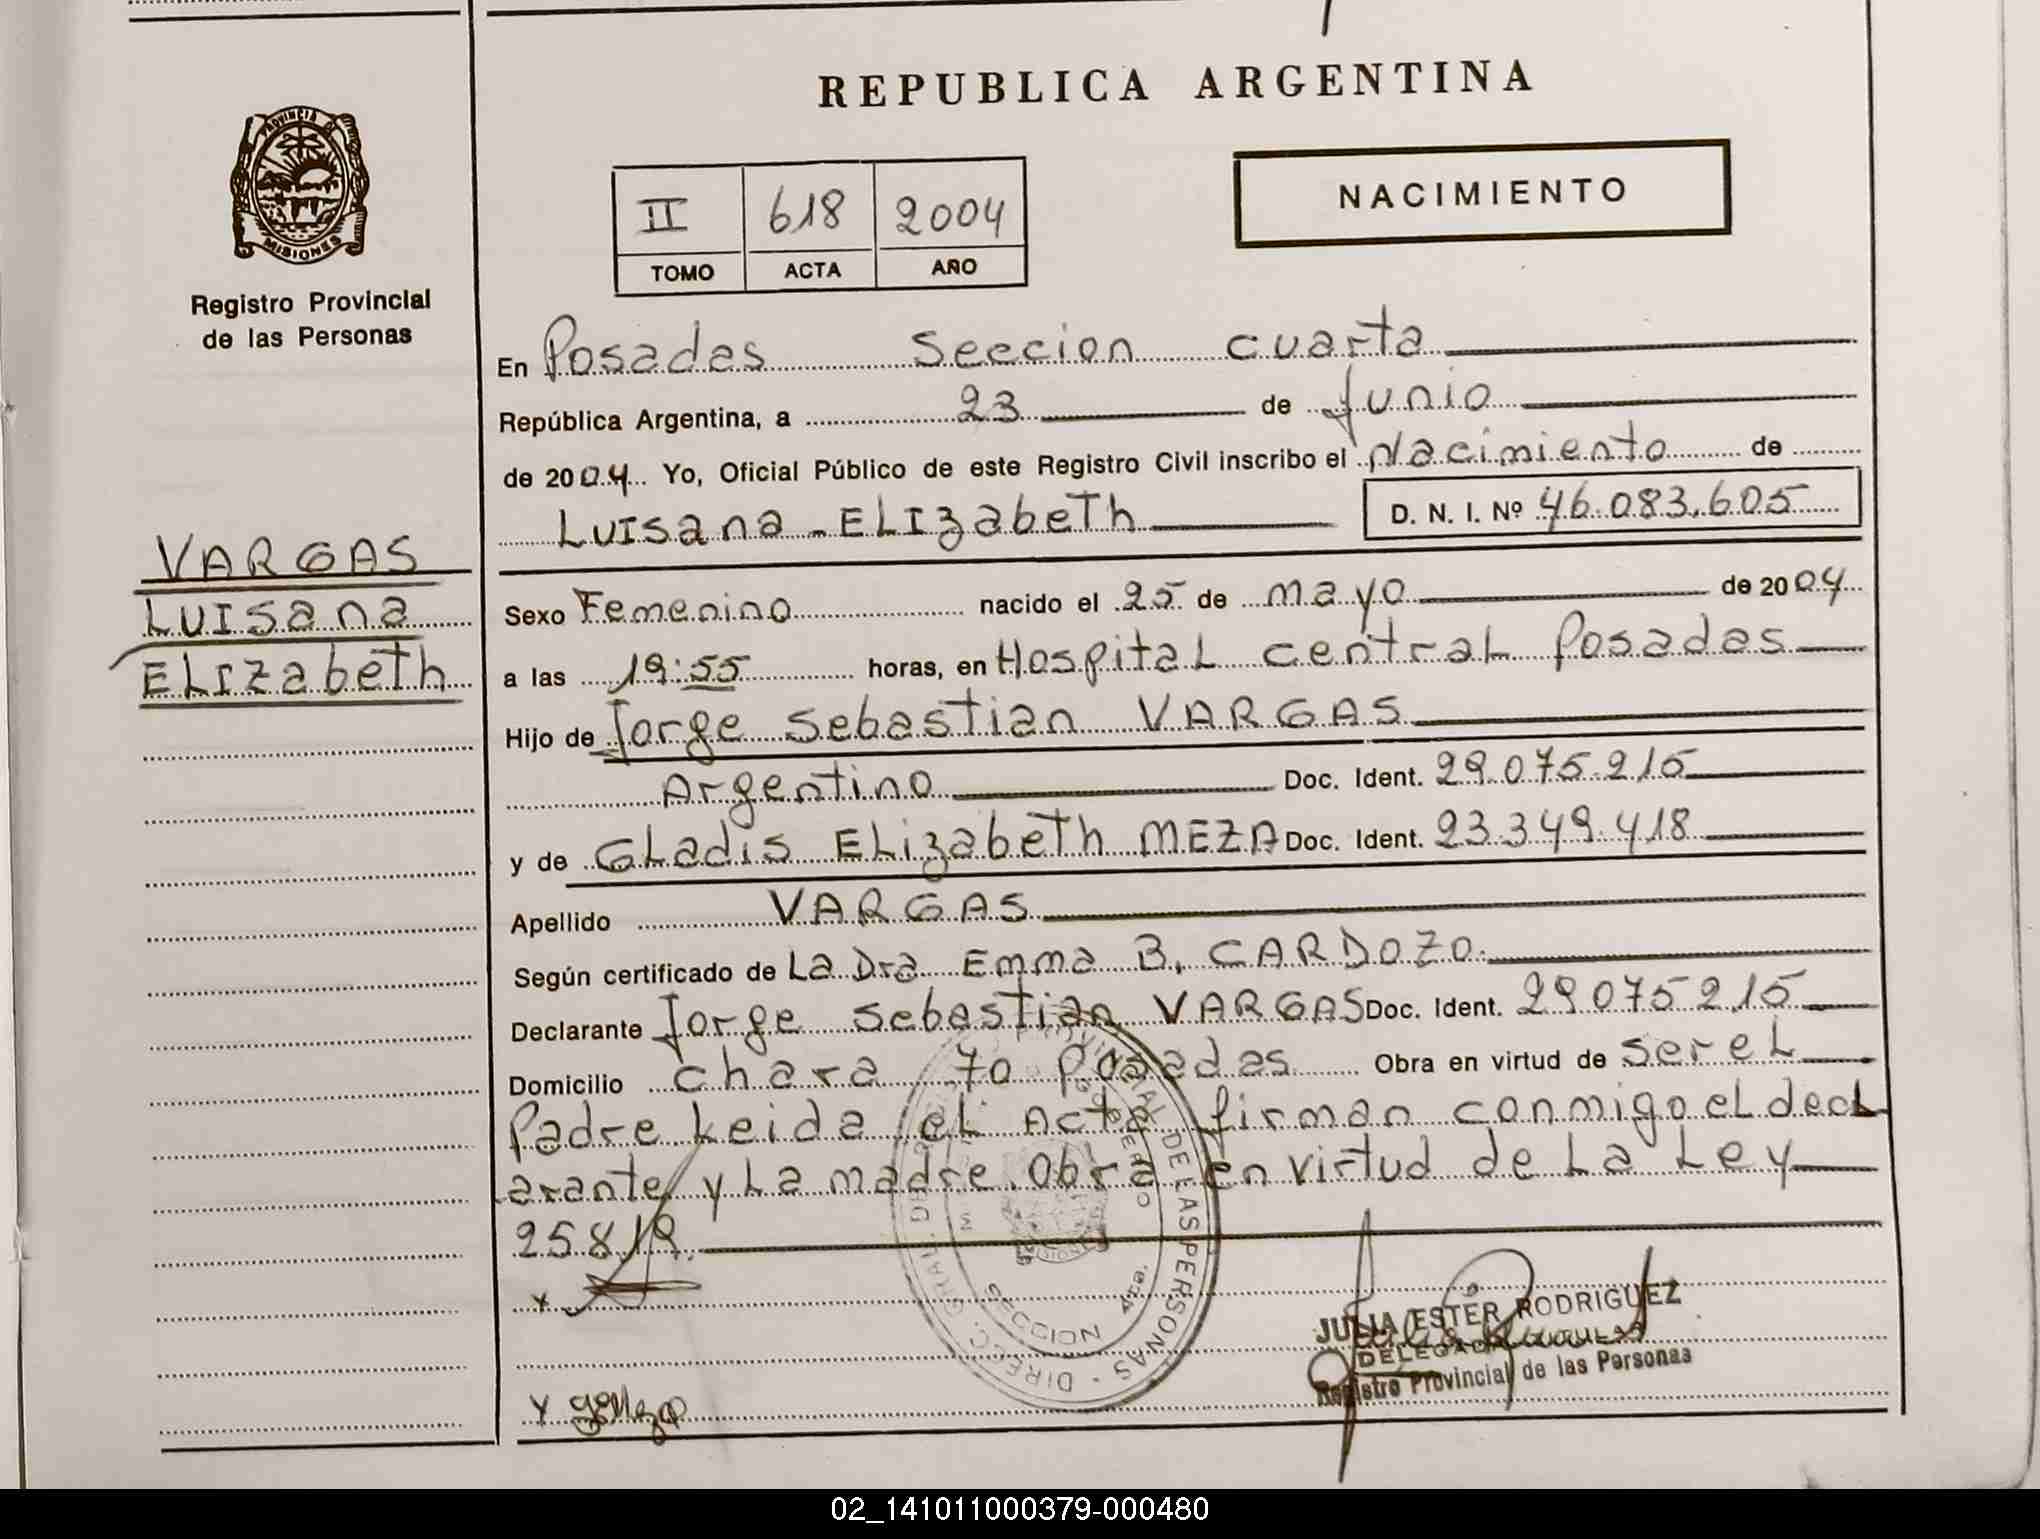 REPUBLICA ARGENTINA
PROVINCIA DE
MISIONES
Registro Provincial
de las Personas
II 618 2004
TOMO ACTA AÑO
NACIMIENTO
En Posadas Seccion cuarta
República Argentina, a 23 de Junio
de 2004 Yo, Oficial Público de este Registro Civil inscribo el Nacimiento de
LUISana ELIzabeTh D. N. I. Nº 46.083.605
VARGAS
LUISana
ELIzabeTh
Sexo Femenino nacido el 25 de mayo de 2004
a las 19:55 horas, en HospitaL centraL Posadas
Hijo de Jorge SebasTian VARGAS
Argentino Doc. Ident. 29.075.215
y de GLadis ELizabeTh MEZA Doc. Ident. 23.349.418
Apellido VARGAS
Según certificado de La Dra Emma B. CARDOZO
Declarante Jorge SebasTian VARGAS Doc. Ident. 29075215
Domicilio chara 70 Posadas Obra en virtud de ser eL
Padre Leida eL Acta firman conmigo eL decL
arante y La madre. Obra en virtud de La Ley
25819.
DIRECC. GRAL. PROVINCIAL DE LAS PERSONAS
SECCION 4ta.
JULIA ESTER RODRIGUEZ
DELEGADA
Registro Provincial de las Personas
02_141011000379-000480